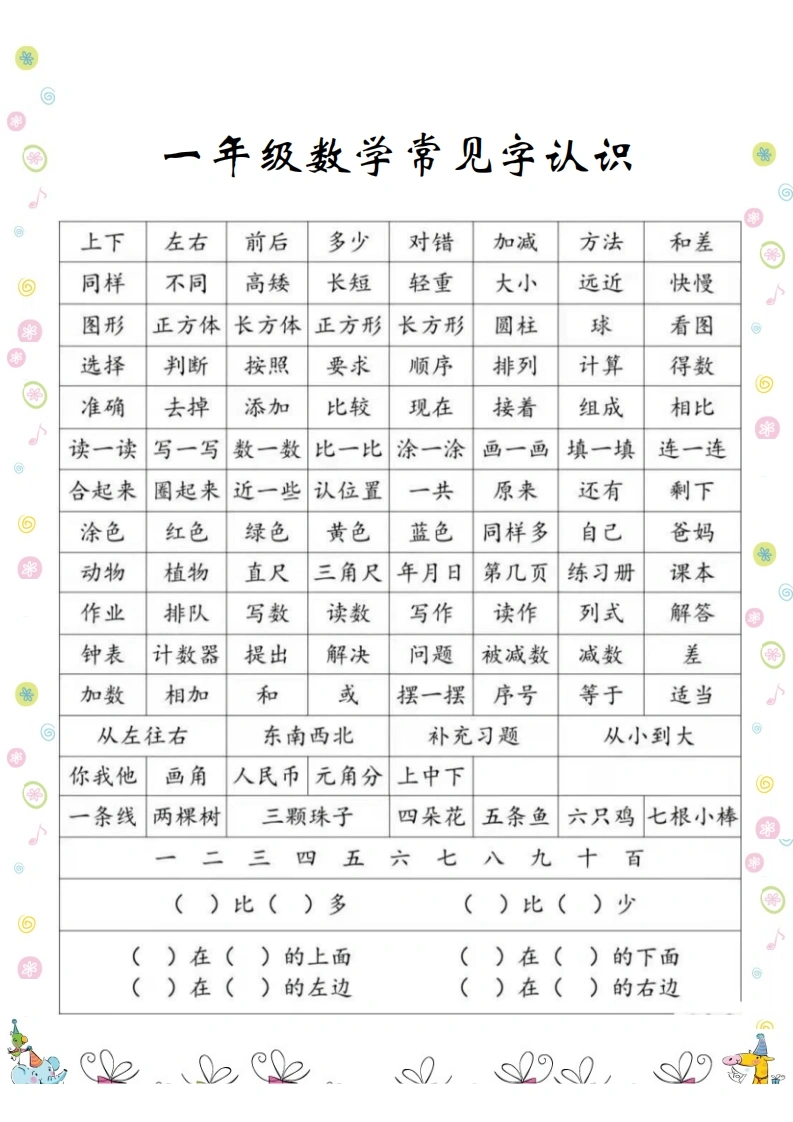 一年级数学常见字认识
上下 左右 前后 多少 对错 加减 方法 和差
同样 不同 高矮 长短 轻重 大小 远近 快慢
图形 正方体 长方体 正方形 长方形 圆柱 球 看图
选择 判断 按照 要求 顺序 排列 计算 得数
准确 去掉 添加 比较 现在 接着 组成 相比
读一读 写一写 数一数 比一比 涂一涂 画一画 填一填 连一连
合起来 圈起来 近一些 认位置 一共 原来 还有 剩下
涂色 红色 绿色 黄色 蓝色 同样多 自己 爸妈
动物 植物 直尺 三角尺 年月日 第几页 练习册 课本
作业 排队 写数 读数 写作 读作 列式 解答
钟表 计数器 提出 解决 问题 被减数 减数 差
加数 相加 和 或 摆一摆 序号 等于 适当
从左往右 东南西北 补充习题 从小到大
你我他 画角 人民币 元角分 上中下
一条线 两棵树 三颗珠子 四朵花 五条鱼 六只鸡 七根小棒
一 二 三 四 五 六 七 八 九 十 百
（ ）比（ ）多 （ ）比（ ）少
（ ）在（ ）的上面 （ ）在（ ）的下面
（ ）在（ ）的左边 （ ）在（ ）的右边